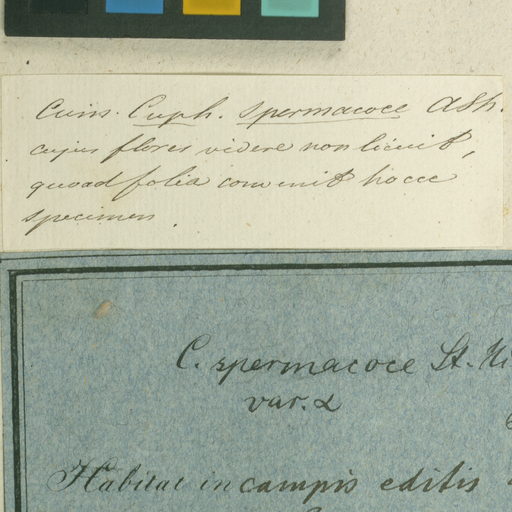 Cum Cuph. spermacoce ASH.
cujus flores videre non licuit,
quoad folia convenit hocce
specimen.
C. spermacoce St. Hi
var. α
Habitat in campis editis